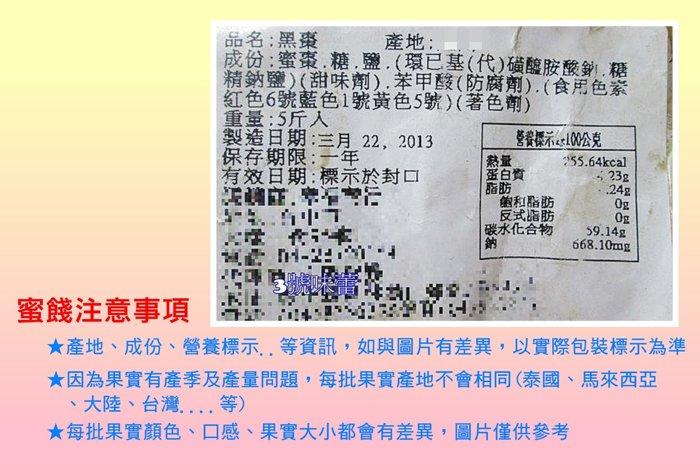 品名:黑棗 產地:
成份:蜜棗.糖.鹽.(環已基(代)磺醯胺酸鈉.糖
精鈉鹽)(甜味劑).苯甲酸(防腐劑).(食用色素
紅色6號藍色1號黃色5號)(著色劑)
重量:5斤入
製造日期:三月 22, 2013
保存期限:一年
有效日期:標示於封口
營養標示 100公克
熱量 255.64kcal
蛋白質 .23g
脂肪 .24g
飽和脂肪 0g
反式脂肪 0g
碳水化合物 59.14g
鈉 668.10mg
3號味蕾
蜜餞注意事項
★產地、成份、營養標示..等資訊，如與圖片有差異，以實際包裝標示為準
★因為果實有產季及產量問題，每批果實產地不會相同(泰國、馬來西亞
、大陸、台灣....等)
★每批果實顏色、口感、果實大小都會有差異，圖片僅供參考